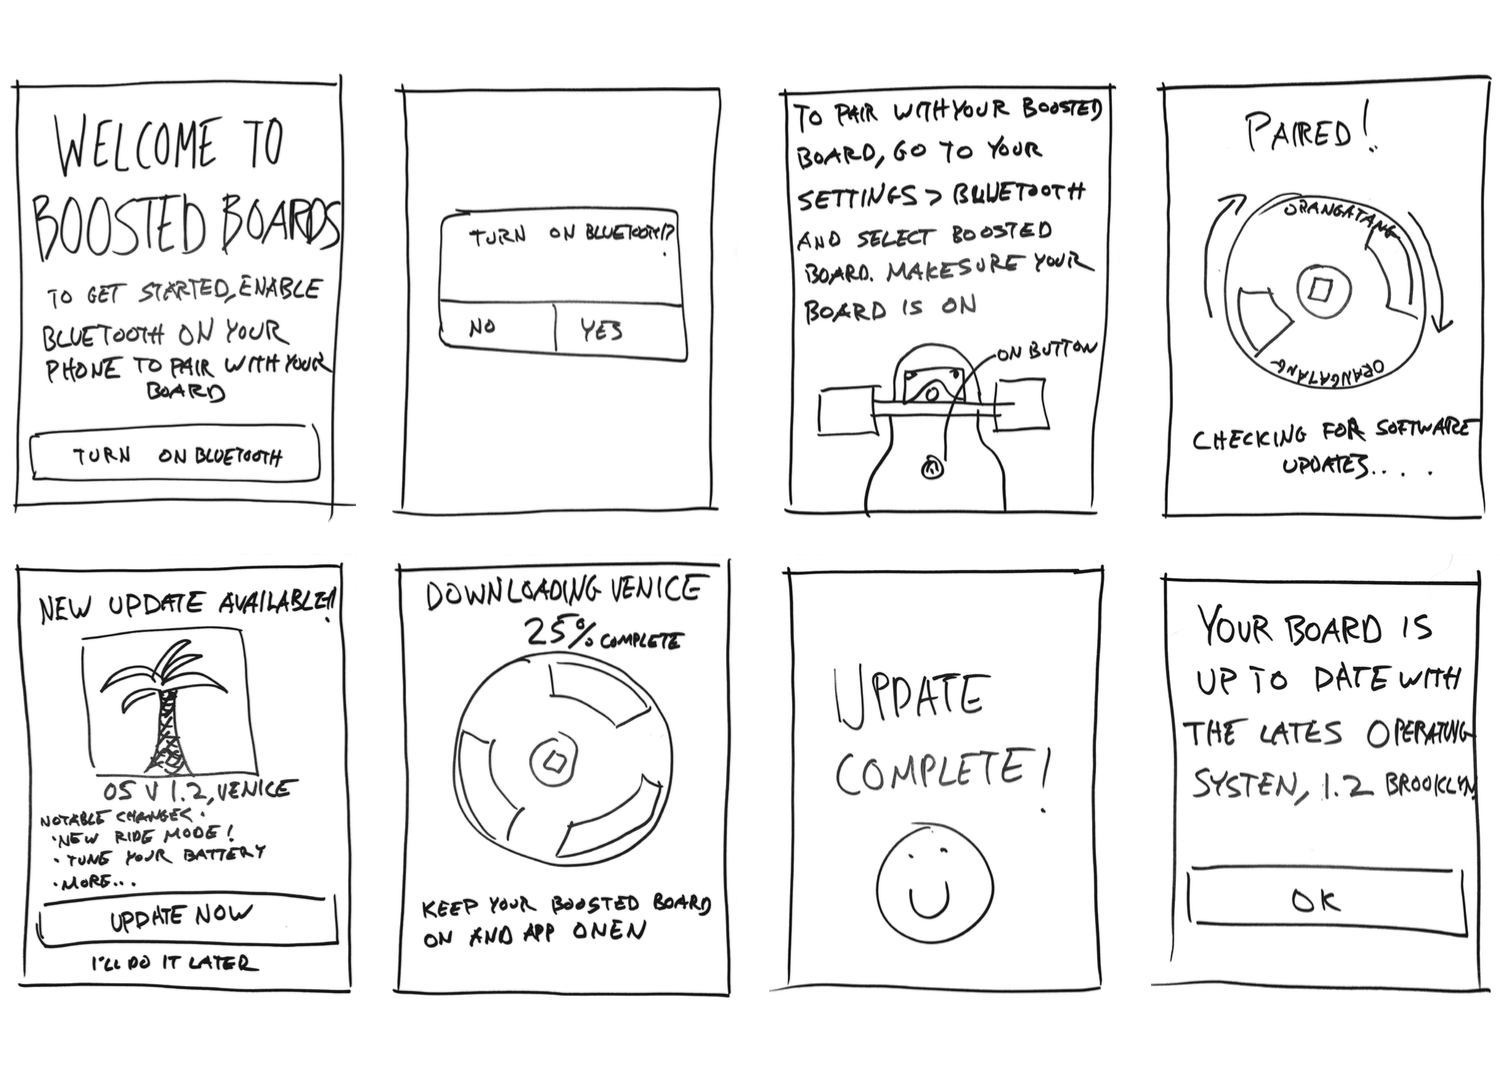 WELCOME TO
BOOSTED BOARDS
TO GET STARTED, ENABLE
BLUETOOTH ON YOUR
PHONE TO PAIR WITH YOUR
BOARD
TURN ON BLUETOOTH
TURN ON BLUETOOTH?
NO
YES
TO PAIR WITH YOUR BOOSTED
BOARD, GO TO YOUR
SETTINGS > BLUETOOTH
AND SELECT BOOSTED
BOARD. MAKE SURE YOUR
BOARD IS ON
ON BUTTON
PAIRED!
ORANGATANG
ORANGATANG
CHECKING FOR SOFTWARE
UPDATES....
NEW UPDATE AVAILABLE!!
OS V 1.2, VENICE
NOTABLE CHANGES.
• NEW RIDE MODE!
• TUNE YOUR BATTERY
• MORE...
UPDATE NOW
I'LL DO IT LATER
DOWNLOADING VENICE
25% COMPLETE
KEEP YOUR BOOSTED BOARD
ON AND APP ONEN
UPDATE
COMPLETE!
YOUR BOARD IS
UP TO DATE WITH
THE LATES OPERATING
SYSTEN, 1.2 BROOKLYN
OK